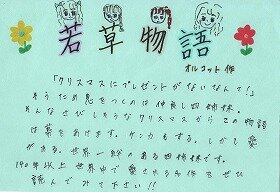 若草物語
オルコット作
「クリスマスにプレゼントがないなんて!」
そうため息をつくのは仲良し四姉妹。
そんなさびしそうなクリスマスからこの物語
は幕をあけます。ケンカもする、しかし愛
がある。世界一絆のある四姉妹です。
140年以上世界中で愛される名作をぜひ
読んでみて下さい!!